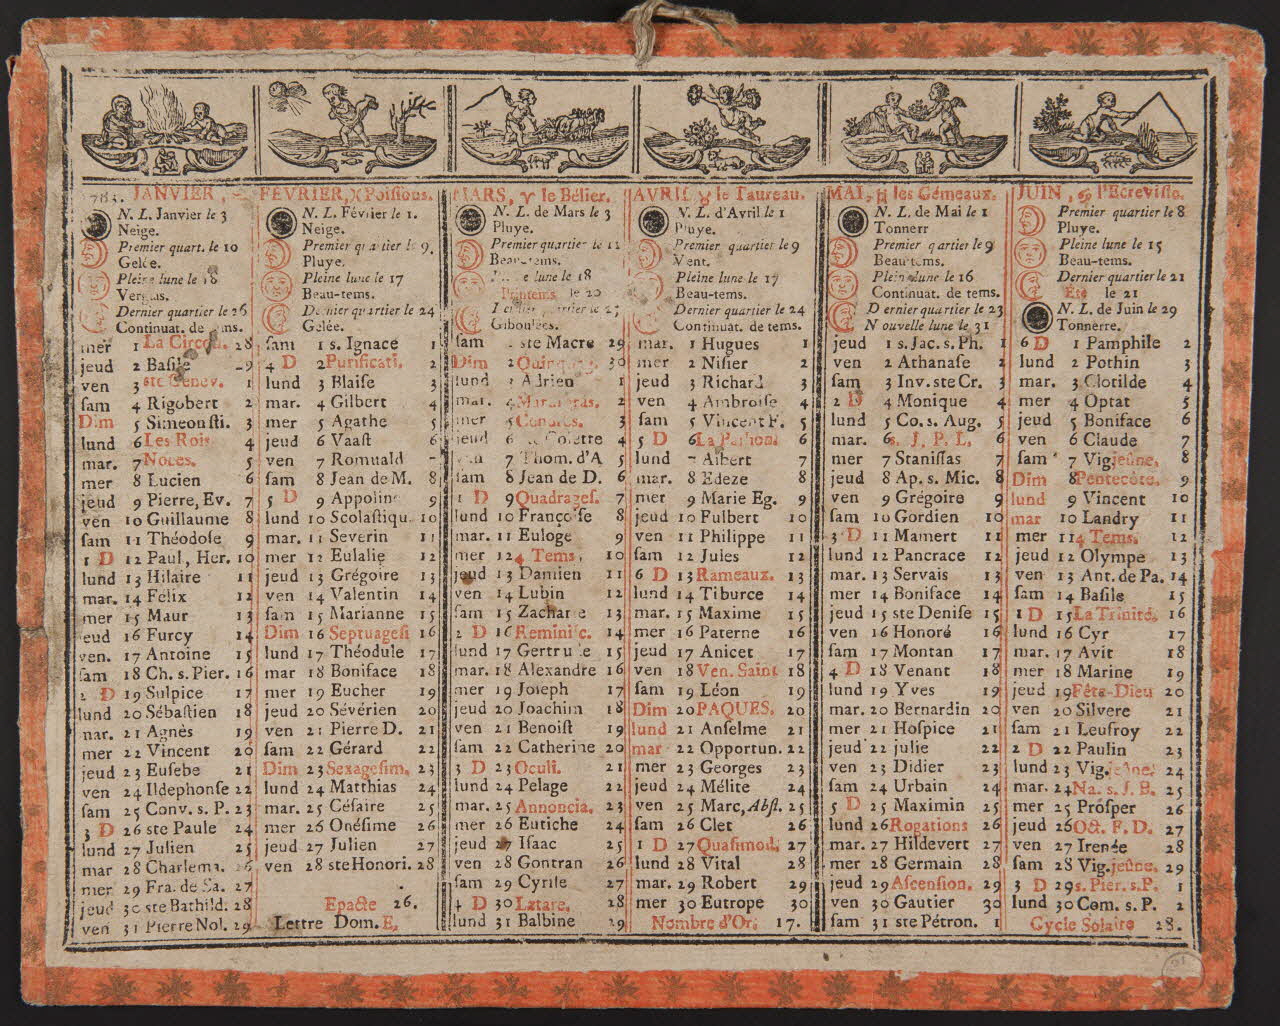 1783. JANVIER,
N. L. Janvier le 3
Neige.
Premier quart. le 10
Gelée.
Pleine lune le 18
Verglas.
Dernier quartier le 26
Continuat. de tems.
mer 1 La Circon. 28
jeud 2 Basile 29
ven 3 ste Genev. 1
sam 4 Rigobert 2
Dim 5 Simeon sti. 3
lund 6 Les Rois 4
mar. 7 Noces. 5
mer 8 Lucien 6
jeud 9 Pierre, Ev. 7
ven 10 Guillaume 8
sam 11 Théodose 9
1 D 12 Paul, Her. 10
lund 13 Hilaire 11
mar. 14 Félix 12
mer 15 Maur 13
jeud 16 Furcy 14
ven. 17 Antoine 15
sam 18 Ch. s. Pier. 16
2 D 19 Sulpice 17
lund 20 Sébastien 18
mar. 21 Agnès 19
mer 22 Vincent 20
jeud 23 Eusebe 21
ven 24 Ildephonse 22
sam 25 Conv. s. P. 23
3 D 26 ste Paule 24
lund 27 Julien 25
mar 28 Charlema. 26
mer 29 Fra. de Sa. 27
jeud 30 ste Bathild. 28
ven 31 Pierre Nol. 29
FÉVRIER, )( Poissons.
N. L. Février le 1.
Neige.
Premier quartier le 9,
Pluye.
Pleine lune le 17
Beau-tems.
Dernier quartier le 24
Gelée.
sam 1 s. Ignace 1
4 D 2 Purificati. 2
lund 3 Blaise 3
mar. 4 Gilbert 4
mer 5 Agathe 5
jeud 6 Vaast 6
ven 7 Romuald 7
sam 8 Jean de M. 8
5 D 9 Appoline 9
lund 10 Scolastiqu. 10
mar. 11 Severin 11
mer 12 Eulalie 12
jeud 13 Grégoire 13
ven 14 Valentin 14
sam 15 Marianne 15
Dim 16 Septuagesi 16
lund 17 Théodule 17
mar 18 Boniface 18
mer 19 Eucher 19
jeud 20 Sévérien 20
ven 21 Pierre D. 21
sam 22 Gérard 22
Dim 23 Sexagesim. 23
lund 24 Matthias 24
mar. 25 Césaire 25
mer 26 Onésime 26
jeud 27 Julien 27
ven 28 ste Honori. 28
Epacte 26.
Lettre Dom. E.
MARS, ♈ le Bélier.
N. L. de Mars le 3
Pluye.
Premier quartier le 11
Beau-tems.
lune le 18
Printems le 20
quartier le 25
Giboulées.
sam ste Macre 29
Dim 2 Quinquag. 30
lund 3 Adrien 1
mar. 4 Mardi gras. 2
mer 5 Cendres. 3
jeud 6 ste Colette 4
ven 7 Thom. d'A 5
sam 8 Jean de D. 6
1 D 9 Quadrages. 7
lund 10 Françoise 8
mar. 11 Euloge 9
mer 12 4 Tems. 10
jeud 13 Damien 11
ven 14 Lubin 12
sam 15 Zacharie 13
2 D 16 Reminisc. 14
lund 17 Gertrude 15
mar. 18 Alexandre 16
mer 19 Joseph 17
jeud 20 Joachim 18
ven 21 Benoist 19
sam 22 Catherine 20
3 D 23 Oculi. 21
lund 24 Pelage 22
mar. 25 Annoncia. 23
mer 26 Eutiche 24
jeud 27 Isaac 25
ven 28 Gontran 26
sam 29 Cyrile 27
4 D 30 Lætare. 28
lund 31 Balbine 29
AVRIL ♉ le Taureau.
N. L. d'Avril le 1
Pluye.
Premier quartier le 9
Vent.
Pleine lune le 17
Beau-tems.
Dernier quartier le 24
Continuat. de tems.
mar. 1 Hugues 1
mer 2 Nisier 2
jeud 3 Richard 3
ven 4 Ambroise 4
sam 5 Vincent F. 5
5 D 6 La Passion. 6
lund 7 Albert 7
mar. 8 Edeze 8
mer 9 Marie Eg. 9
jeud 10 Fulbert 10
ven 11 Philippe 11
sam 12 Jules 12
6 D 13 Rameaux. 13
lund 14 Tiburce 14
mar. 15 Maxime 15
mer 16 Paterne 16
jeud 17 Anicet 17
ven 18 Ven. Saint 18
sam 19 Léon 19
Dim 20 PAQUES. 20
lund 21 Anselme 21
mar 22 Opportun. 22
mer 23 Georges 23
jeud 24 Mélite 24
ven 25 Marc, Abst. 25
sam 26 Clet 26
1 D 27 Quasimod. 27
lund 28 Vital 28
mar. 29 Robert 29
mer 30 Eutrope 30
Nombre d'Or. 17.
MAI, ♊ les Gémeaux.
N. L. de Mai le 1
Tonnerr
Premier quartier le 9
Beau-tems.
Pleine lune le 16
Continuat. de tems.
Dernier quartier le 23
Nouvelle lune le 31
jeud 1 s. Jac. s. Ph. 1
ven 2 Athanase 2
sam 3 Inv. ste Cr. 3
2 D 4 Monique 4
lund 5 Co. s. Aug. 5
mar. 6 s. J. P. L. 6
mer 7 Stanislas 7
jeud 8 Ap. s. Mic. 8
ven 9 Grégoire 9
sam 10 Gordien 10
3 D 11 Mamert 11
lund 12 Pancrace 12
mar. 13 Servais 13
mer 14 Boniface 14
jeud 15 ste Denise 15
ven 16 Honoré 16
sam 17 Montan 17
4 D 18 Venant 18
lund 19 Yves 19
mar. 20 Bernardin 20
mer 21 Hospice 21
jeud 22 julie 22
ven 23 Didier 23
sam 24 Urbain 24
5 D 25 Maximin 25
lund 26 Rogations 26
mar. 27 Hildevert 27
mer 28 Germain 28
jeud 29 Ascension. 29
ven 30 Gautier 30
sam 31 ste Pétron. 1
JUIN, ♋ l'Ecrevisse.
Premier quartier le 8
Pluye.
Pleine lune le 15
Beau-tems.
Dernier quartier le 21
Eté le 21
N. L. de Juin le 29
Tonnerre.
6 D 1 Pamphile 2
lund 2 Pothin 3
mar. 3 Clotilde 4
mer 4 Optat 5
jeud 5 Boniface 6
ven 6 Claude 7
sam 7 Vig. jeûne. 8
Dim 8 Pentecôte. 9
lund 9 Vincent 10
mar 10 Landry 11
mer 11 4 Tems. 12
jeud 12 Olympe 13
ven 13 Ant. de Pa. 14
sam 14 Basile 15
1 D 15 La Trinité. 16
lund 16 Cyr 17
mar. 17 Avit 18
mer 18 Marine 19
jeud 19 Fête-Dieu 20
ven 20 Silvere 21
sam 21 Leufroy 22
2 D 22 Paulin 23
lund 23 Vig. jeûne. 24
mar. 24 Na. s. J. B. 25
mer 25 Prosper 26
jeud 26 Oct. F. D. 27
ven 27 Irenée 28
sam 28 Vig. jeûne. 29
3 D 29 s. Pier. s. P. 1
lund 30 Com. s. P. 2
Cycle Solaire 28.